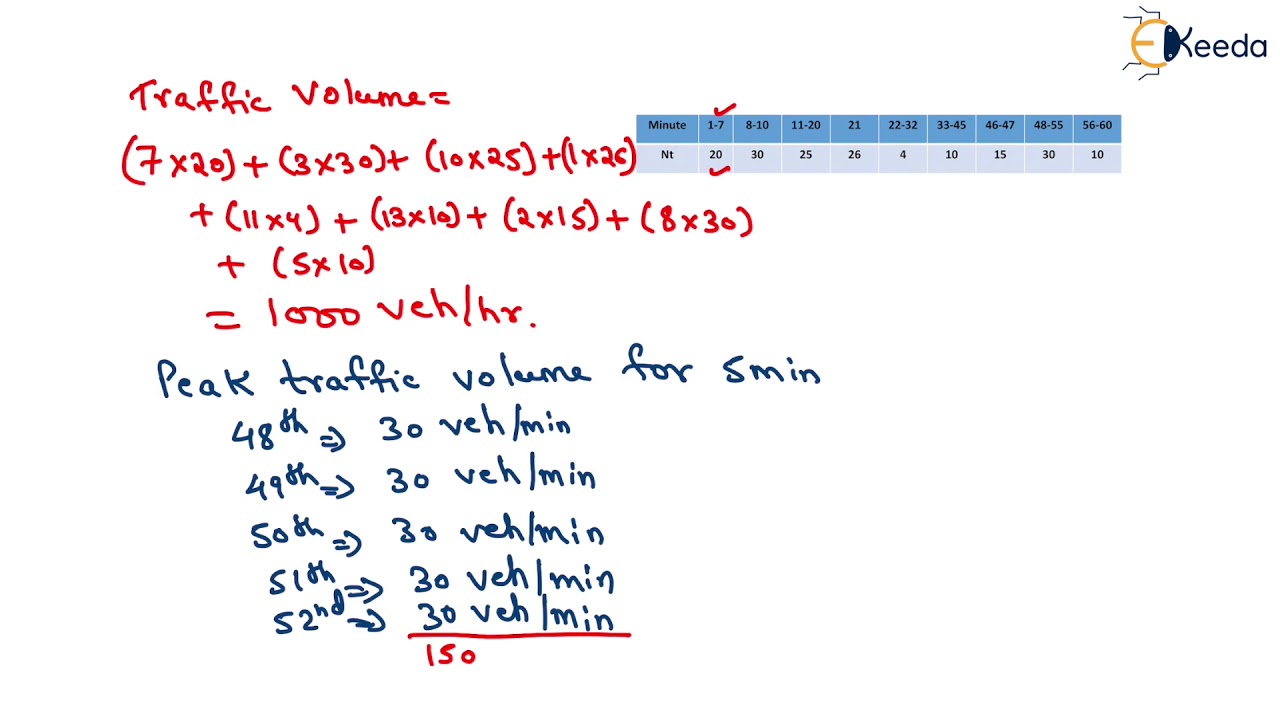 EKeeda
Traffic Volume=
Minute 1-7 8-10 11-20 21 22-32 33-45 46-47 48-55 56-60
Nt 20 30 25 26 4 10 15 30 10
(7×20)+(3×30)+(10×25)+(1×26)
+(11×4)+(13×10)+(2×15)+(8×30)
+(5×10)
= 1000 veh/hr.
Peak traffic volume for 5min
48th ⇒ 30 veh/min
49th ⇒ 30 veh/min
50th ⇒ 30 veh/min
51th ⇒ 30 veh/min
52nd ⇒ 30 veh/min
150